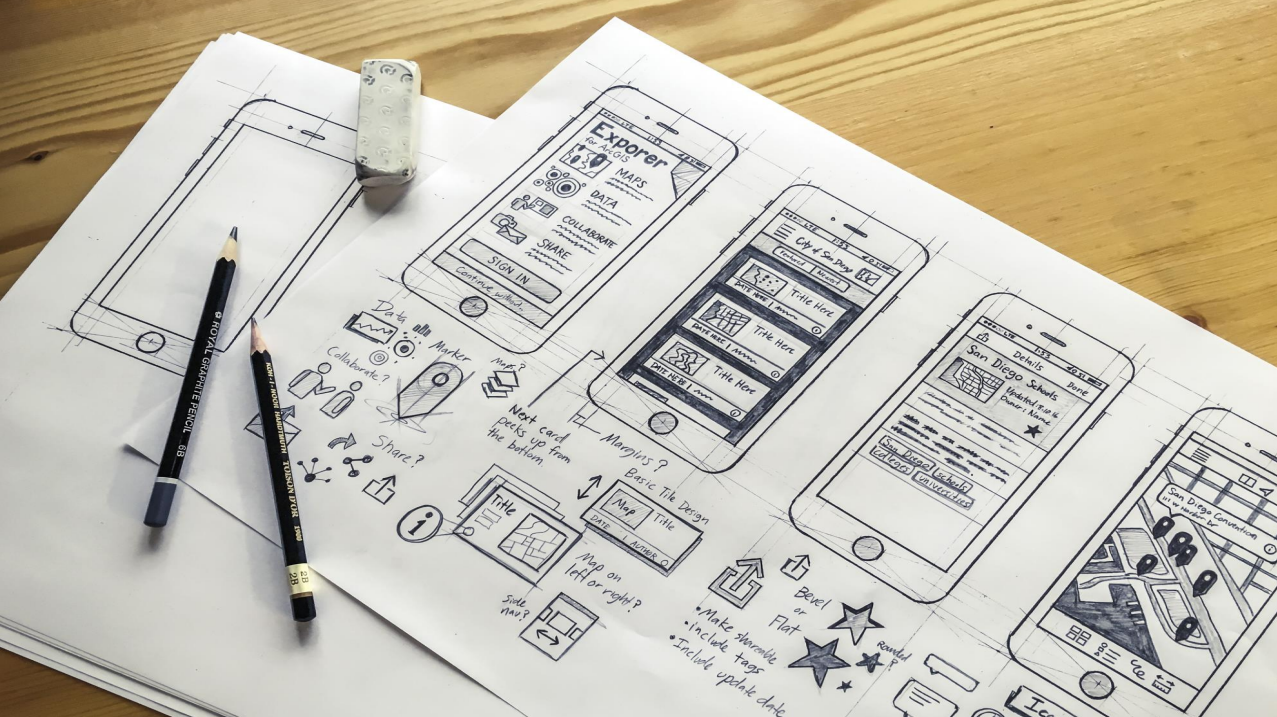 Exporer
for ArcGIS
MAPS
DATA
COLLABORATE
SHARE
SIGN IN
Continue without
LTE 1:52
City of San Diego
Featured
Title Here
DATE HERE
Title Here
DATE HERE
Title Here
DATE HERE
LTE 1:52
Details
Done
San Diego Schools
Updated
Owner: Name
San Diego
schools
colleges
universities
San Diego Convention
111 W Harbor Dr
Data
Marker
Maps?
Collaborate?
Share?
Next card
peeks up from
the bottom
Margins?
Basic Tile Design
Map
Title
DATE | AUTHOR
i
Title
Map on
left or right?
side
nav?
Bevel
or
Flat
• Make shareable
• include tags
• Include update date
Rounded
?
ROYAL GRAPHITE PENCIL 6B
KOH-I-NOOR HARDTMUTH TOISON D'OR 1900
2B
2B